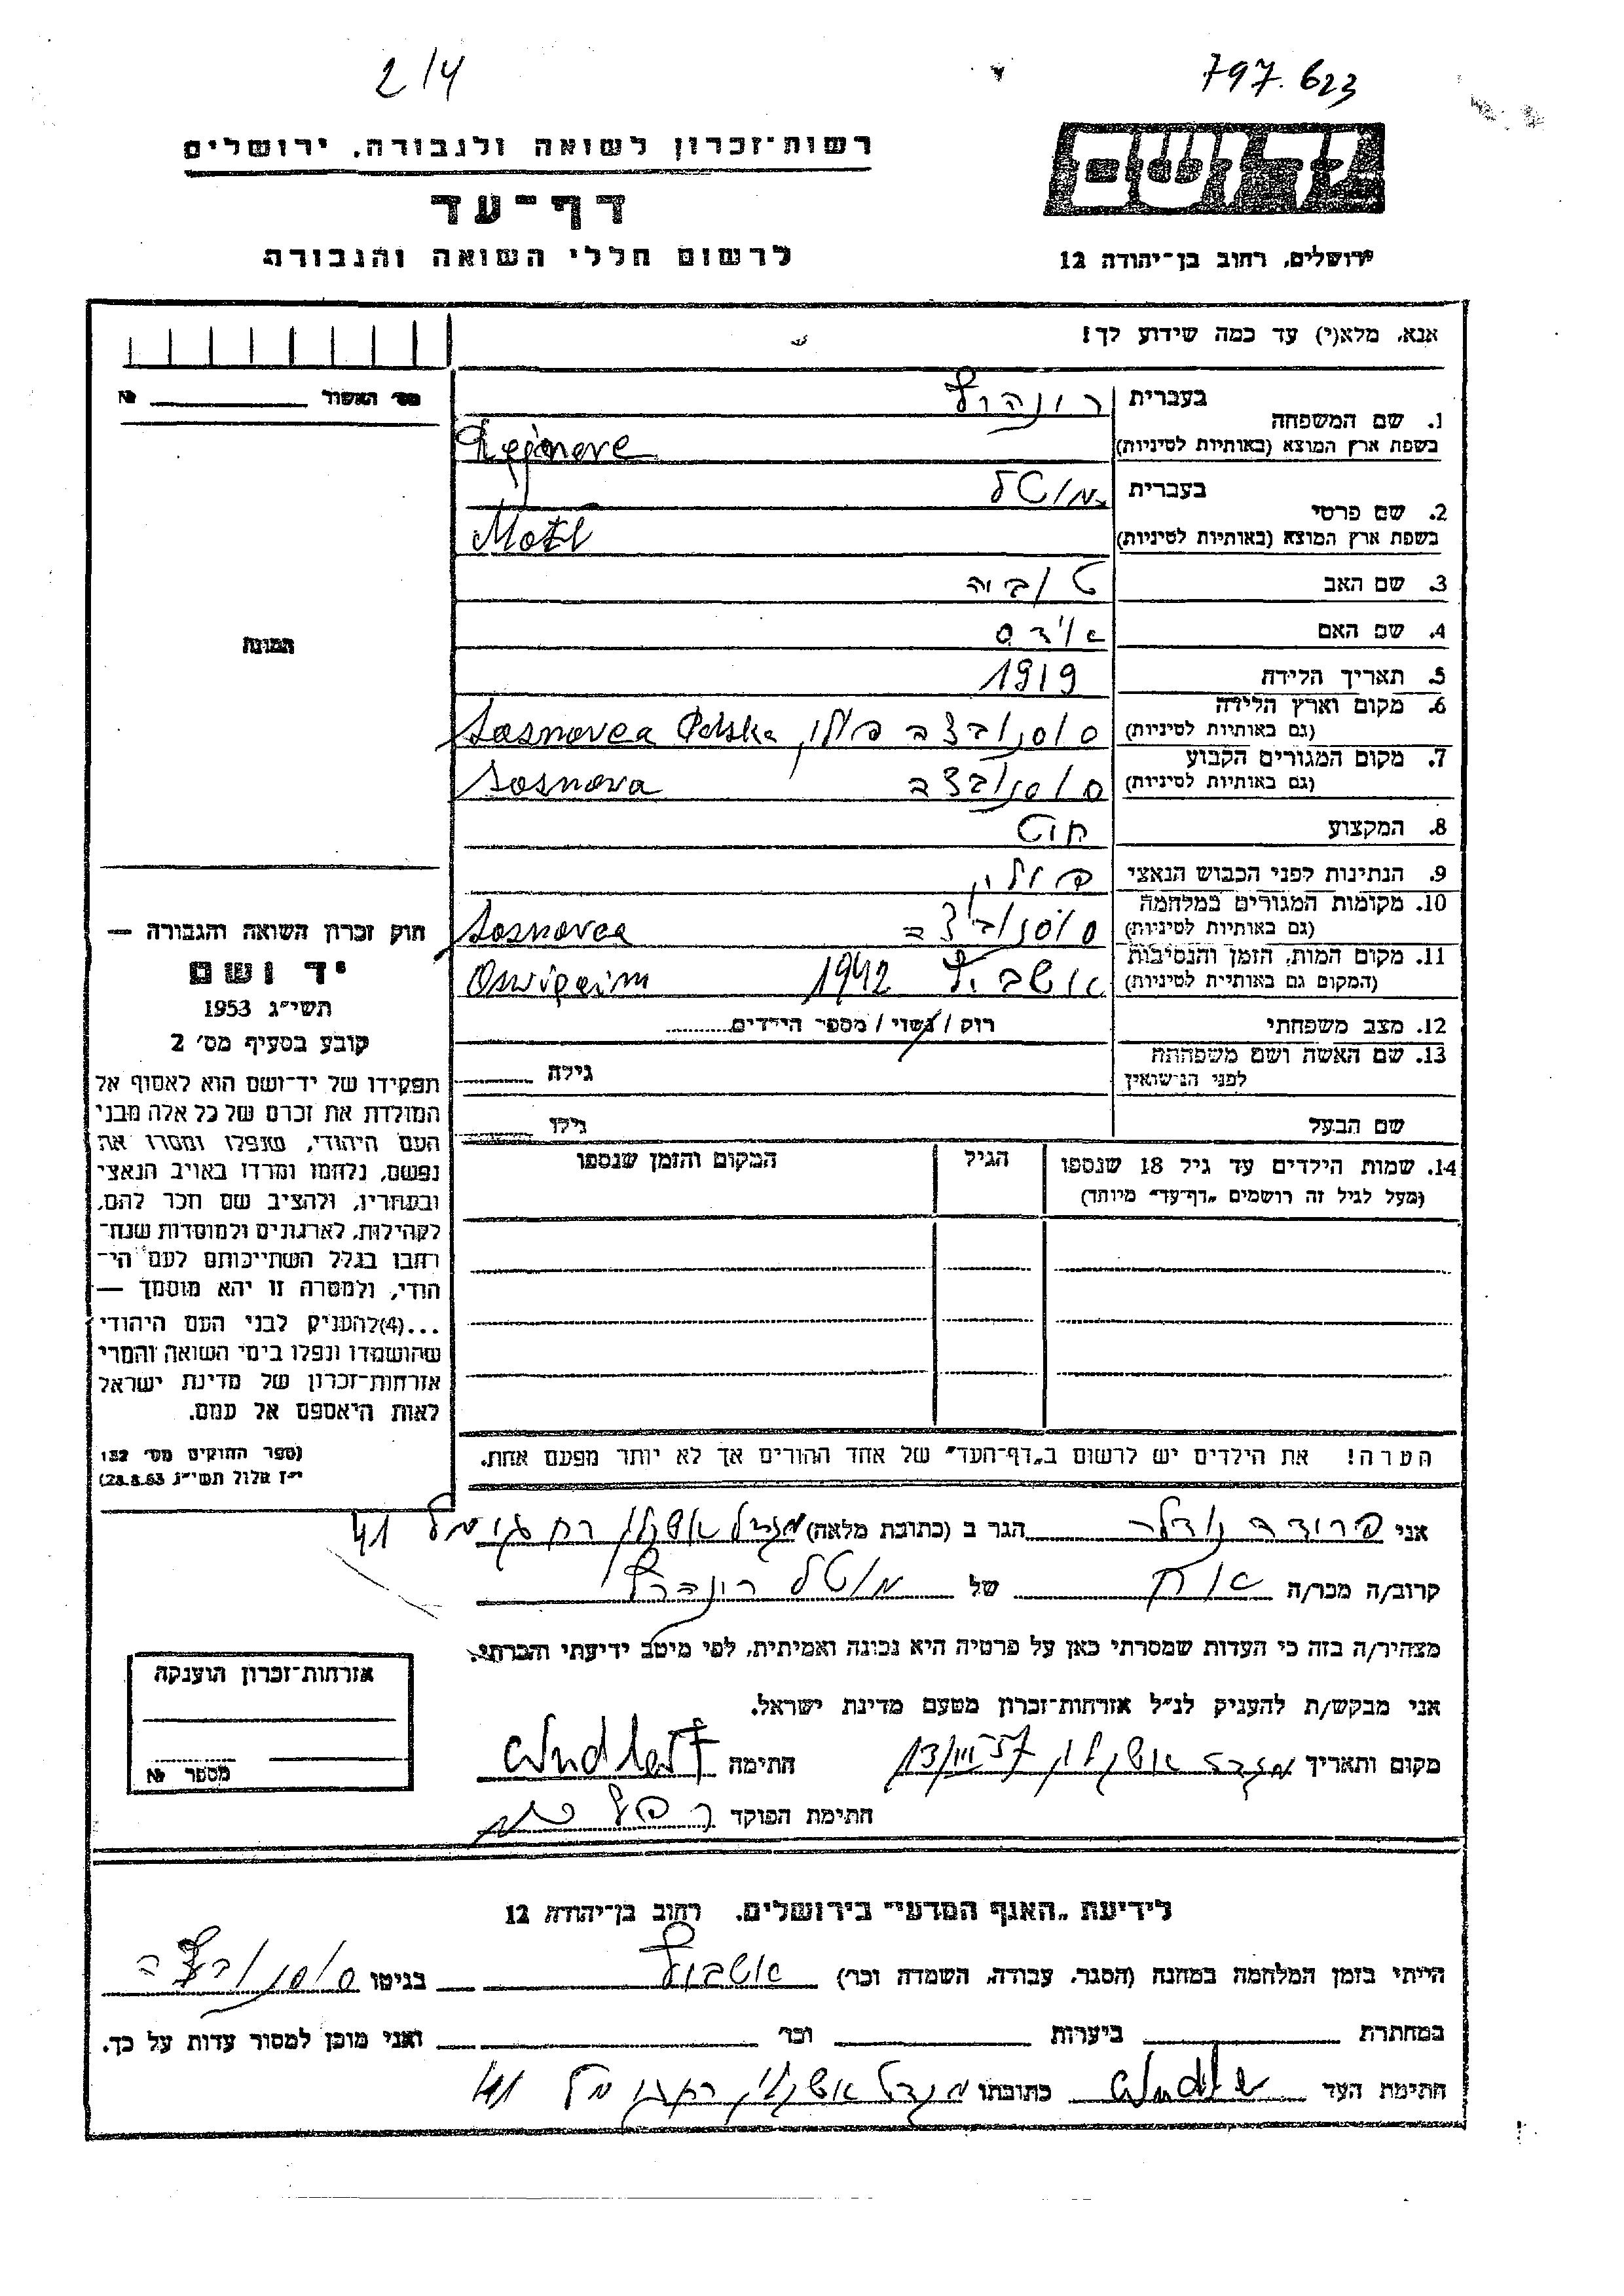 2/4
797.623
רשות־זכרון לשואה ולגבורה, ירושלים
דף־עד
לרשום חללי השואה והגבורה
יד ושם
ירושלים, רחוב בן־יהודה 12
אנא, מלא(י) עד כמה שידוע לך!
מס' האשור №
1. שם המשפחה
בעברית
בשפת ארץ המוצא (באותיות לטיניות)
2. שם פרטי
בעברית מוטל
בשפת ארץ המוצא (באותיות לטיניות) Motl
3. שם האב טוביה
4. שם האם
5. תאריך הלידה 1919
6. מקום וארץ הלידה
(גם באותיות לטיניות) סוסנובצה פולין Sosnovca Polska
7. מקום המגורים הקבוע
(גם באותיות לטיניות) סוסנובצה Sosnova
8. המקצוע חיט
9. הנתינות לפני הכבוש הנאצי פולין
10. מקומות המגורים במלחמה
(גם באותיות לטיניות) סוסנוביצה Sosnovca
11. מקום המות, הזמן והנסיבות
(המקום גם באותיות לטיניות) אושביץ 1942
12. מצב משפחתי רווק / נשוי / מספר הילדים
13. שם האשה ושם משפחתה
לפני הנישואין גילה
שם הבעל גילו
14. שמות הילדים עד גיל 18 שנספו הגיל המקום והזמן שנספו
(מעל לגיל זה רושמים „דף־עד” מיוחד)
הערה! את הילדים יש לרשום ב„דף־העד” של אחד ההורים אך לא יותר מפעם אחת.
התמונה
חוק זכרון השואה והגבורה —
יד ושם
תשי״ג 1953
קובע בסעיף מס׳ 2
תפקידו של יד־ושם הוא לאסוף אל
המולדת את זכרם של כל אלה מבני
העם היהודי, שנפלו ומסרו את
נפשם, נלחמו ומרדו באויב הנאצי
ובעוזריו, ולהציב שם וזכר להם,
לקהילות, לארגונים ולמוסדות שנח־
רבו בגלל השתייכותם לעם הי־
הודי, ולמטרה זו יהא מוסמך —
...(4)להעניק לבני העם היהודי
שהושמדו ונפלו בימי השואה והמרי
אזרחות־זכרון של מדינת ישראל
לאות היאספם אל עמם.
(ספר החוקים מס׳ 132
י״ז אלול תשי״ג 28.8.53)
אני הגר ב (כתובת מלאה) מגדל אשקלון 41
קרוב/ה מכר/ה אח של מוטל
מצהיר/ה בזה כי העדות שמסרתי כאן על פרטיה היא נכונה ואמיתית, לפי מיטב ידיעתי והכרתי.
אני מבקש/ת להעניק לנ״ל אזרחות־זכרון מטעם מדינת ישראל.
מקום ותאריך מגדל אשקלון חתימה
חתימת הפוקד
אזרחות־זכרון הוענקה
מספר №
לידיעת „האגף המדעי” בירושלים, רחוב בן־יהודה 12
הייתי בזמן המלחמה במחנה (הסגר, עבודה, השמדה וכו׳) אושביץ בגיטו
במחתרת ביערות וכו׳ ואני מוכן למסור עדות על כך.
חתימת העד כתובתו מגדל אשקלון 41